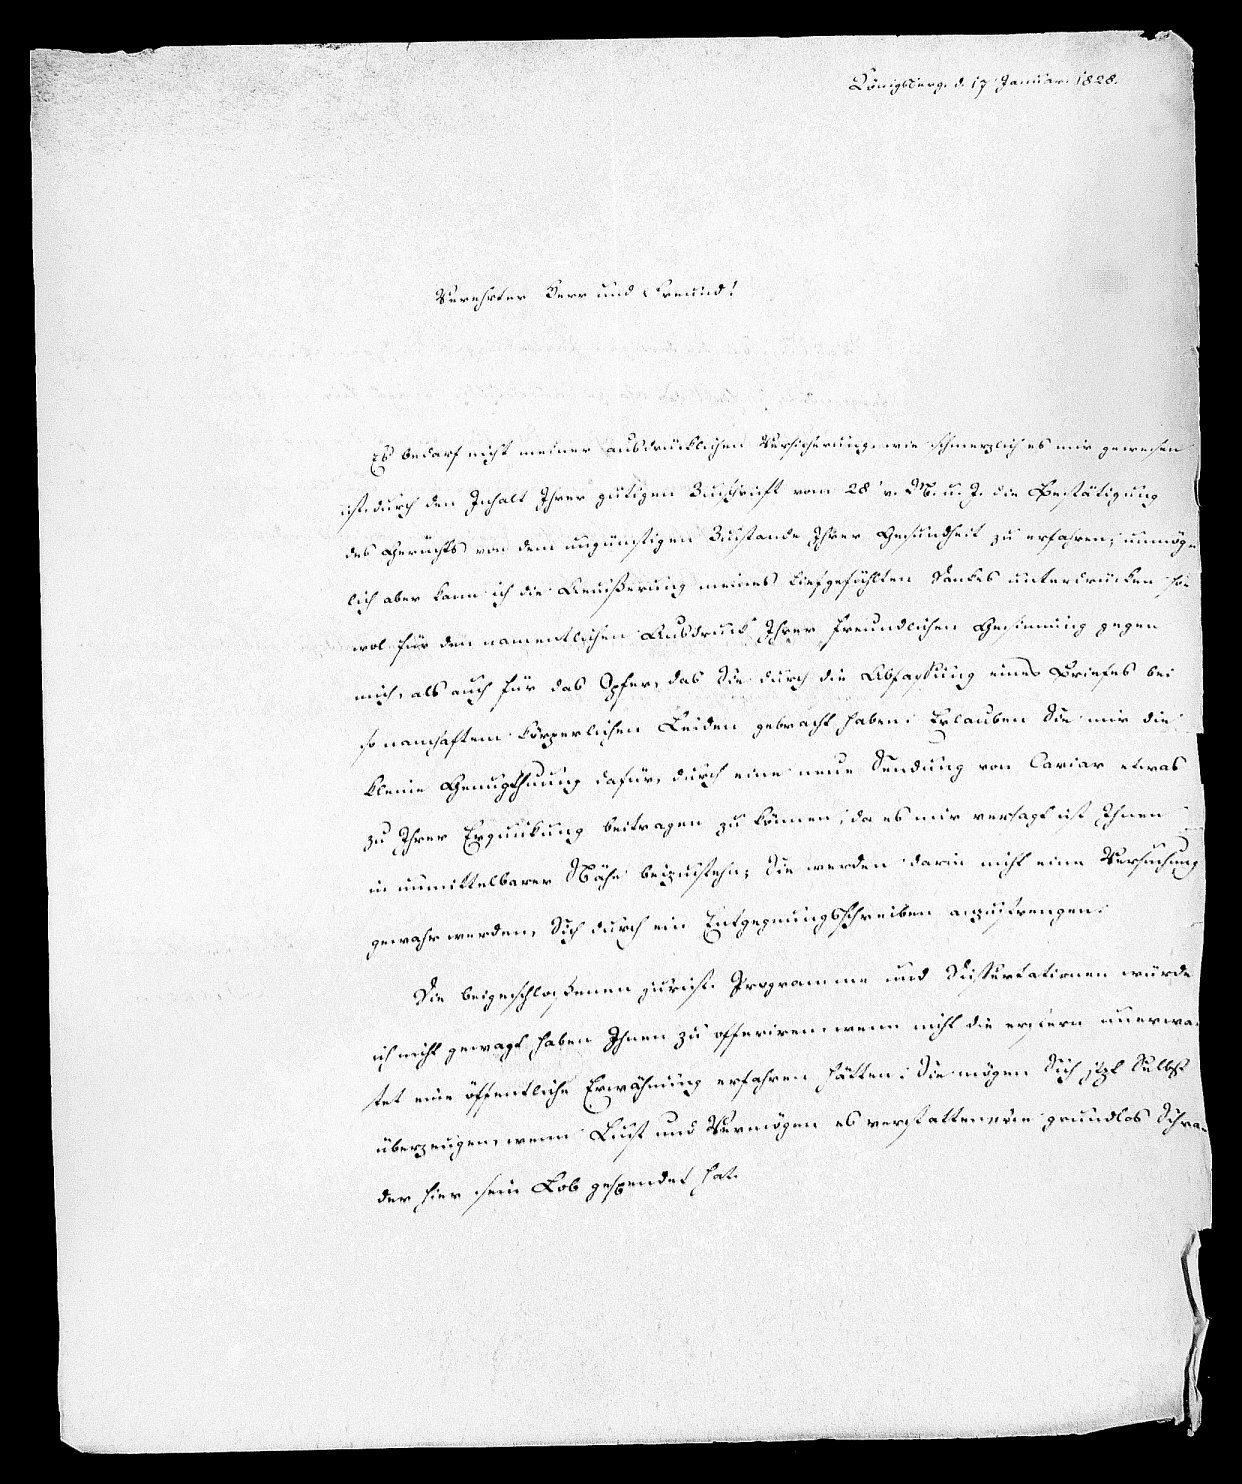 Königsberg. d. 17 Januar. 1828.
Verehrter Herr und Freund!
Es bedarf nicht meiner ausdrücklichen Versicherung, wie schmerzlich es mir gewesen
ist, durch den Inhalt Ihrer gütigen Zuschrift vom 28 v. M. u. J. die Bestätigung
des Gerüchts von dem ungünstigen Zustande Ihrer Gesundheit zu erfahren; unmög-
lich aber kann ich die Aeußerung meines tiefgefühlten Dankes unterdrücken so-
wol für den namentlichen Ausdruck Ihrer freundlichen Gesinnung gegen
mich, als auch für das Opfer, das Sie durch die Abfassung eines Briefes bei
so namhaftem körperlichen Leiden gebracht haben. Erlauben Sie mir die
kleine Genugthuung dafür, durch eine neue Sendung von Caviar etwas
zu Ihrer Erquickung beitragen zu können; da es mir versagt ist Ihnen
in unmittelbarer Nähe beizustehn; Sie werden darin nicht eine Versuchung
gewahr werden, Sich durch ein Entgegnungsschreiben anzustrengen.
Die beigeschloßenen jurist. Programme und Dissertationen würde
ich nicht gewagt haben Ihnen zu offeriren, wenn nicht die erstern unerwar-
tet eine öffentliche Erwähnung erfahren hätten. Sie mögen Sich jtzt Selbst
überzeugen, wenn Lust und Vermögen es verstatten, wie grundlos Schra-
der hier sein Lob gespendet hat.